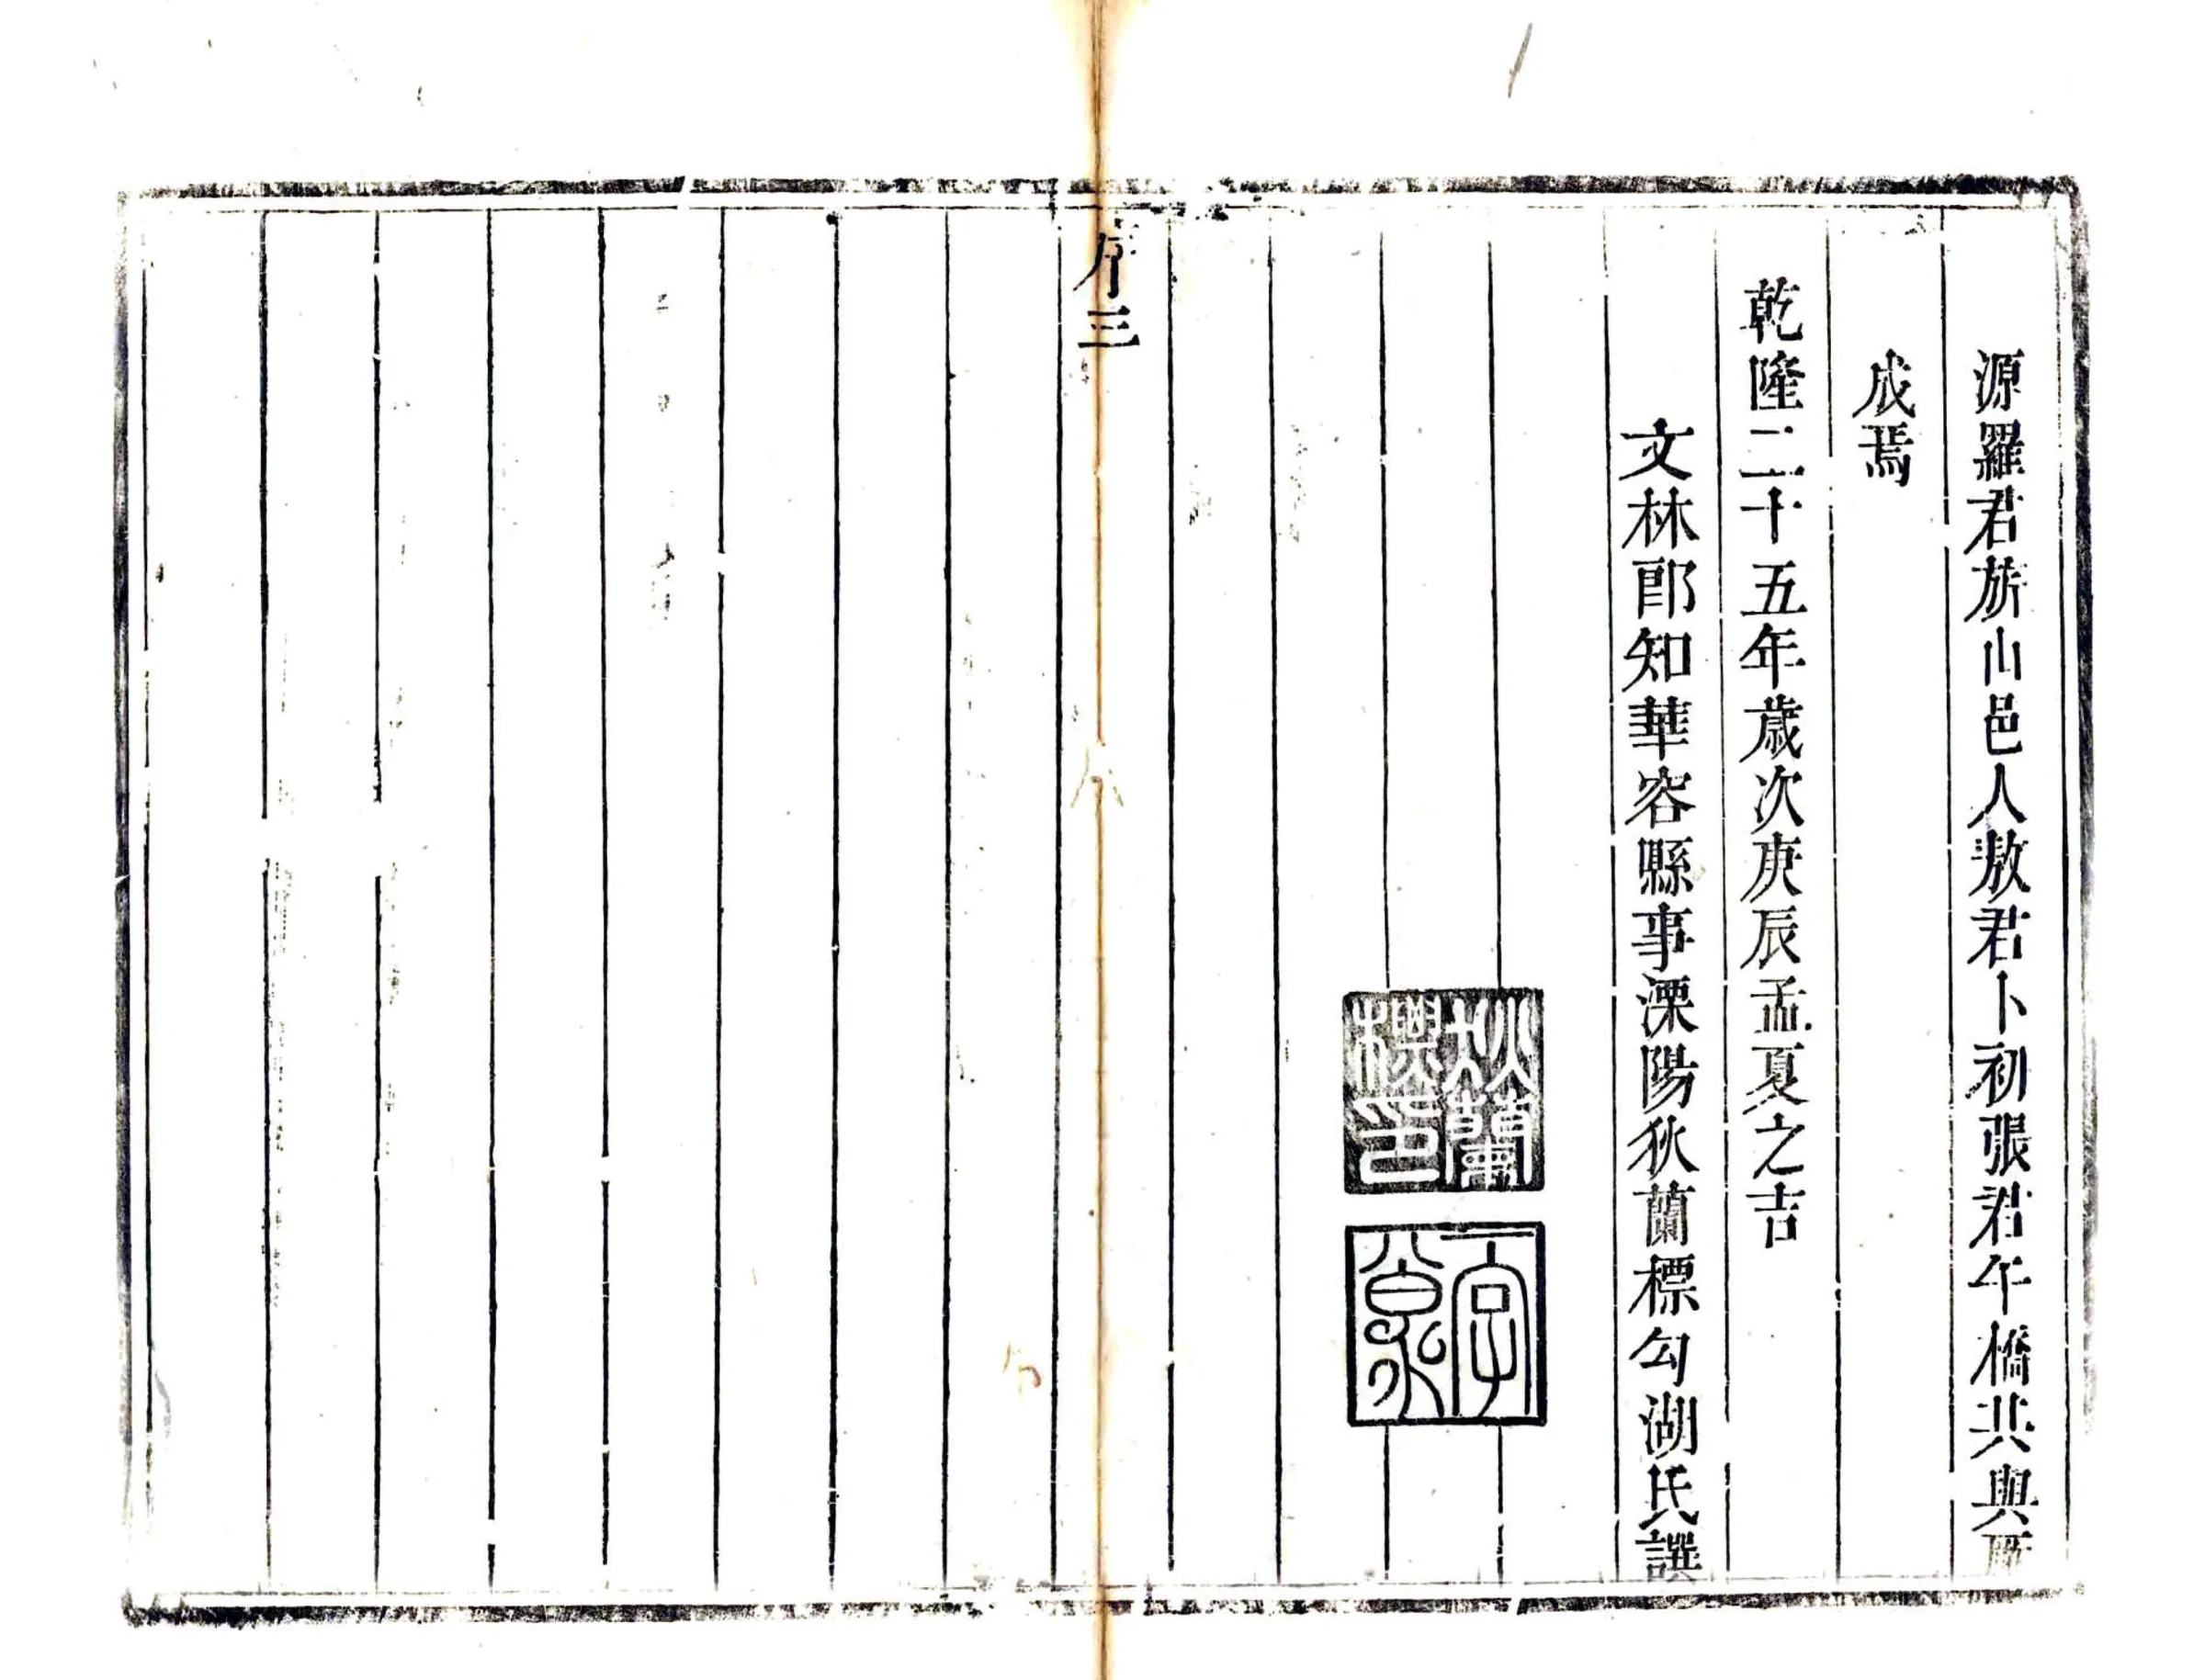 源羅君旂山邑人敖君卜初張君午橋共與
成焉
乾隆二十五年歲次庚辰孟夏之吉
文林郎知華容縣事溧陽狄蘭標勾湖氏譔
狄蘭標印
一字
序三